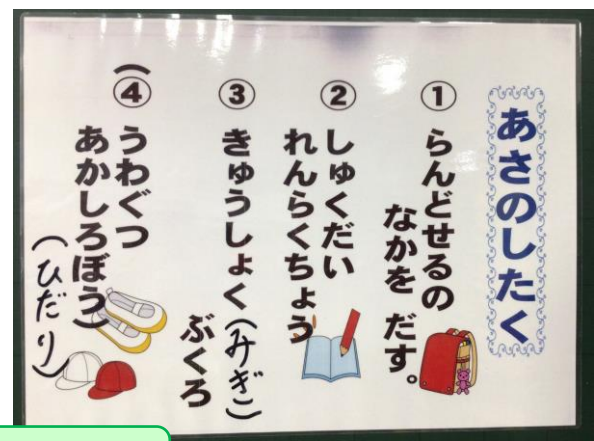 あさのしたく
① らんどせるの
なかを だす。
② しゅくだい
れんらくちょう
③ きゅうしょく(みぎ)
ぶくろ
(④ うわぐつ
あかしろぼう)
(ひだり)